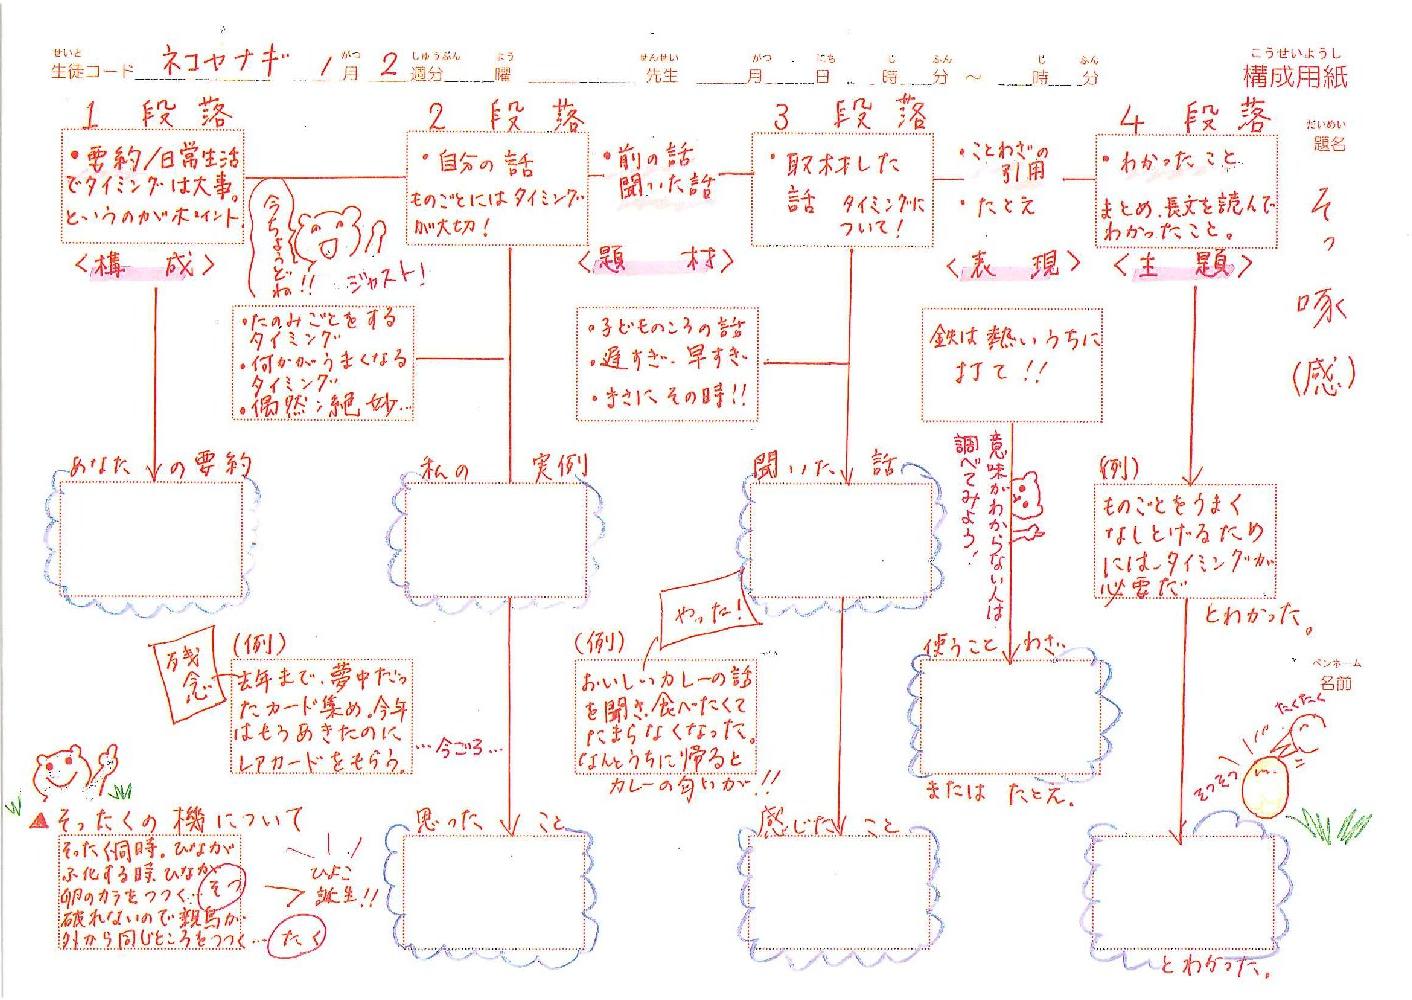 せいと
生徒コード ネコヤナギ 1月 2週分 曜 先生 月 日 時 分 ～ 時 分
がつ しゅうぶん よう せんせい がつ にち じ ふん じ ふん
こうせいようし
構成用紙
だいめい
題名
そっ啄
(感)
1 段落
・要約/日常生活
でタイミングは大事。
というのがポイント。
<構成>
今ちょうどね!!
ジャスト!
2 段落
・自分の話
ものごとにはタイミング
が大切!
・前の話
聞いた話
<題材>
3 段落
・取材した
話 タイミングに
ついて!
・ことわざの
引用
・たとえ
<表現>
4 段落
・わかったこと
まとめ、長文を読んで
わかったこと。
<主題>
・たのみごとをする
タイミング
・何かがうまくなる
タイミング
・偶然:絶妙…
・子どものころの話
・遅すぎ、早すぎ
・まさにその時!!
鉄は熱いうちに
打て!!
意味がわからない人は
調べてみよう!
あなたの要約
私の実例
聞いた話
(例)
ものごとをうまく
なしとげるため
には、タイミングが
必要だ
とわかった。
残念
(例)
去年まで、夢中だっ
たカード集め。今年
はもうあきたのに
レアカードをもらう。
…今ごろ…
やった!
(例)
おいしいカレーの話
を聞き、食べたくて
たまらなくなった。
なんとうちに帰ると
カレーの匂いが!!
使うことわざ
または たとえ。
ペンネーム
名前
たくたく
そつそつ
▲そったくの機について
そったく同時。ひなが
ふ化する時、ひなが
卵のカラをつつく…そつ
破れないので親鳥が
外から同じところをつつく…たく
ひよこ
誕生!!
思ったこと
感じたこと
とわかった。